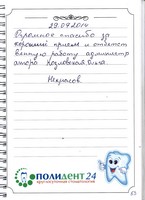 29.09.2014
Огромное спасибо за
хороший прием и ответст
венную работу администр
атора Козловская Ольга
Некрасов.
ПОЛИДЕНТ 24
круглосуточная стоматология